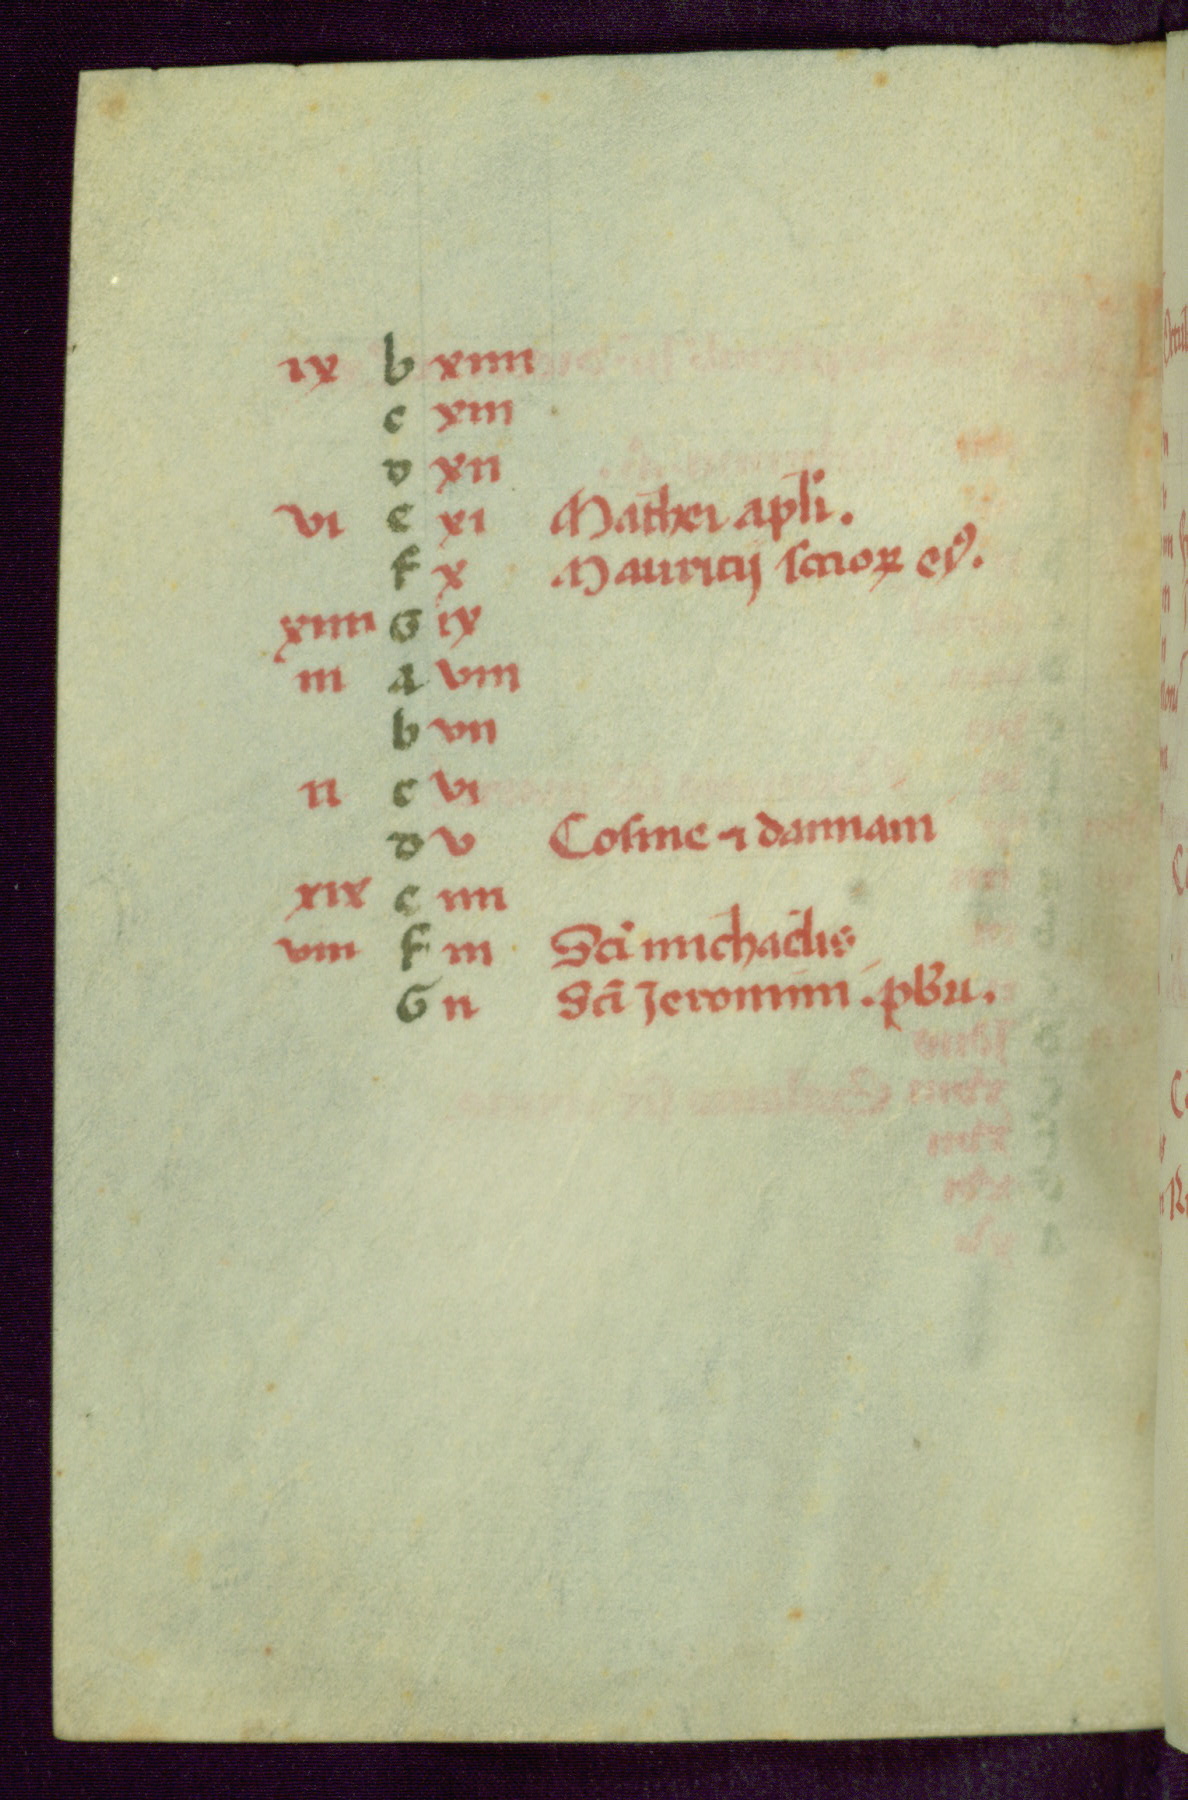 ix b xiiii
c xiii
d xii
vi e xi Mathei apli.
f x Mauricij socioꝝ eiꝰ.
xiiii G ix
iii A viii
b vii
ii c vi
d v Cosme ⁊ damiani
xix e iiii
viii f iii Sci michaelis
G ii Sci Jeronimi. pbri.